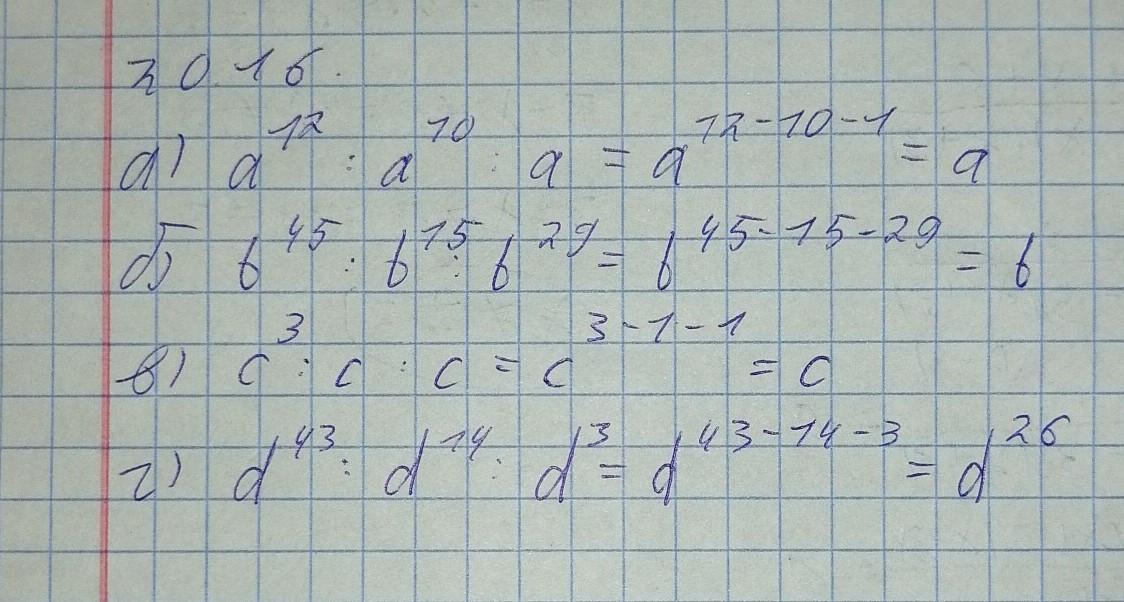 20.16.
а) a¹² : a¹⁰ : a = a¹²⁻¹⁰⁻¹ = a
б) b⁴⁵ : b¹⁵ : b²⁹ = b⁴⁵⁻¹⁵⁻²⁹ = b
в) c³ : c : c = c³⁻¹⁻¹ = c
г) d⁴³ : d¹⁴ : d³ = d⁴³⁻¹⁴⁻³ = d²⁶